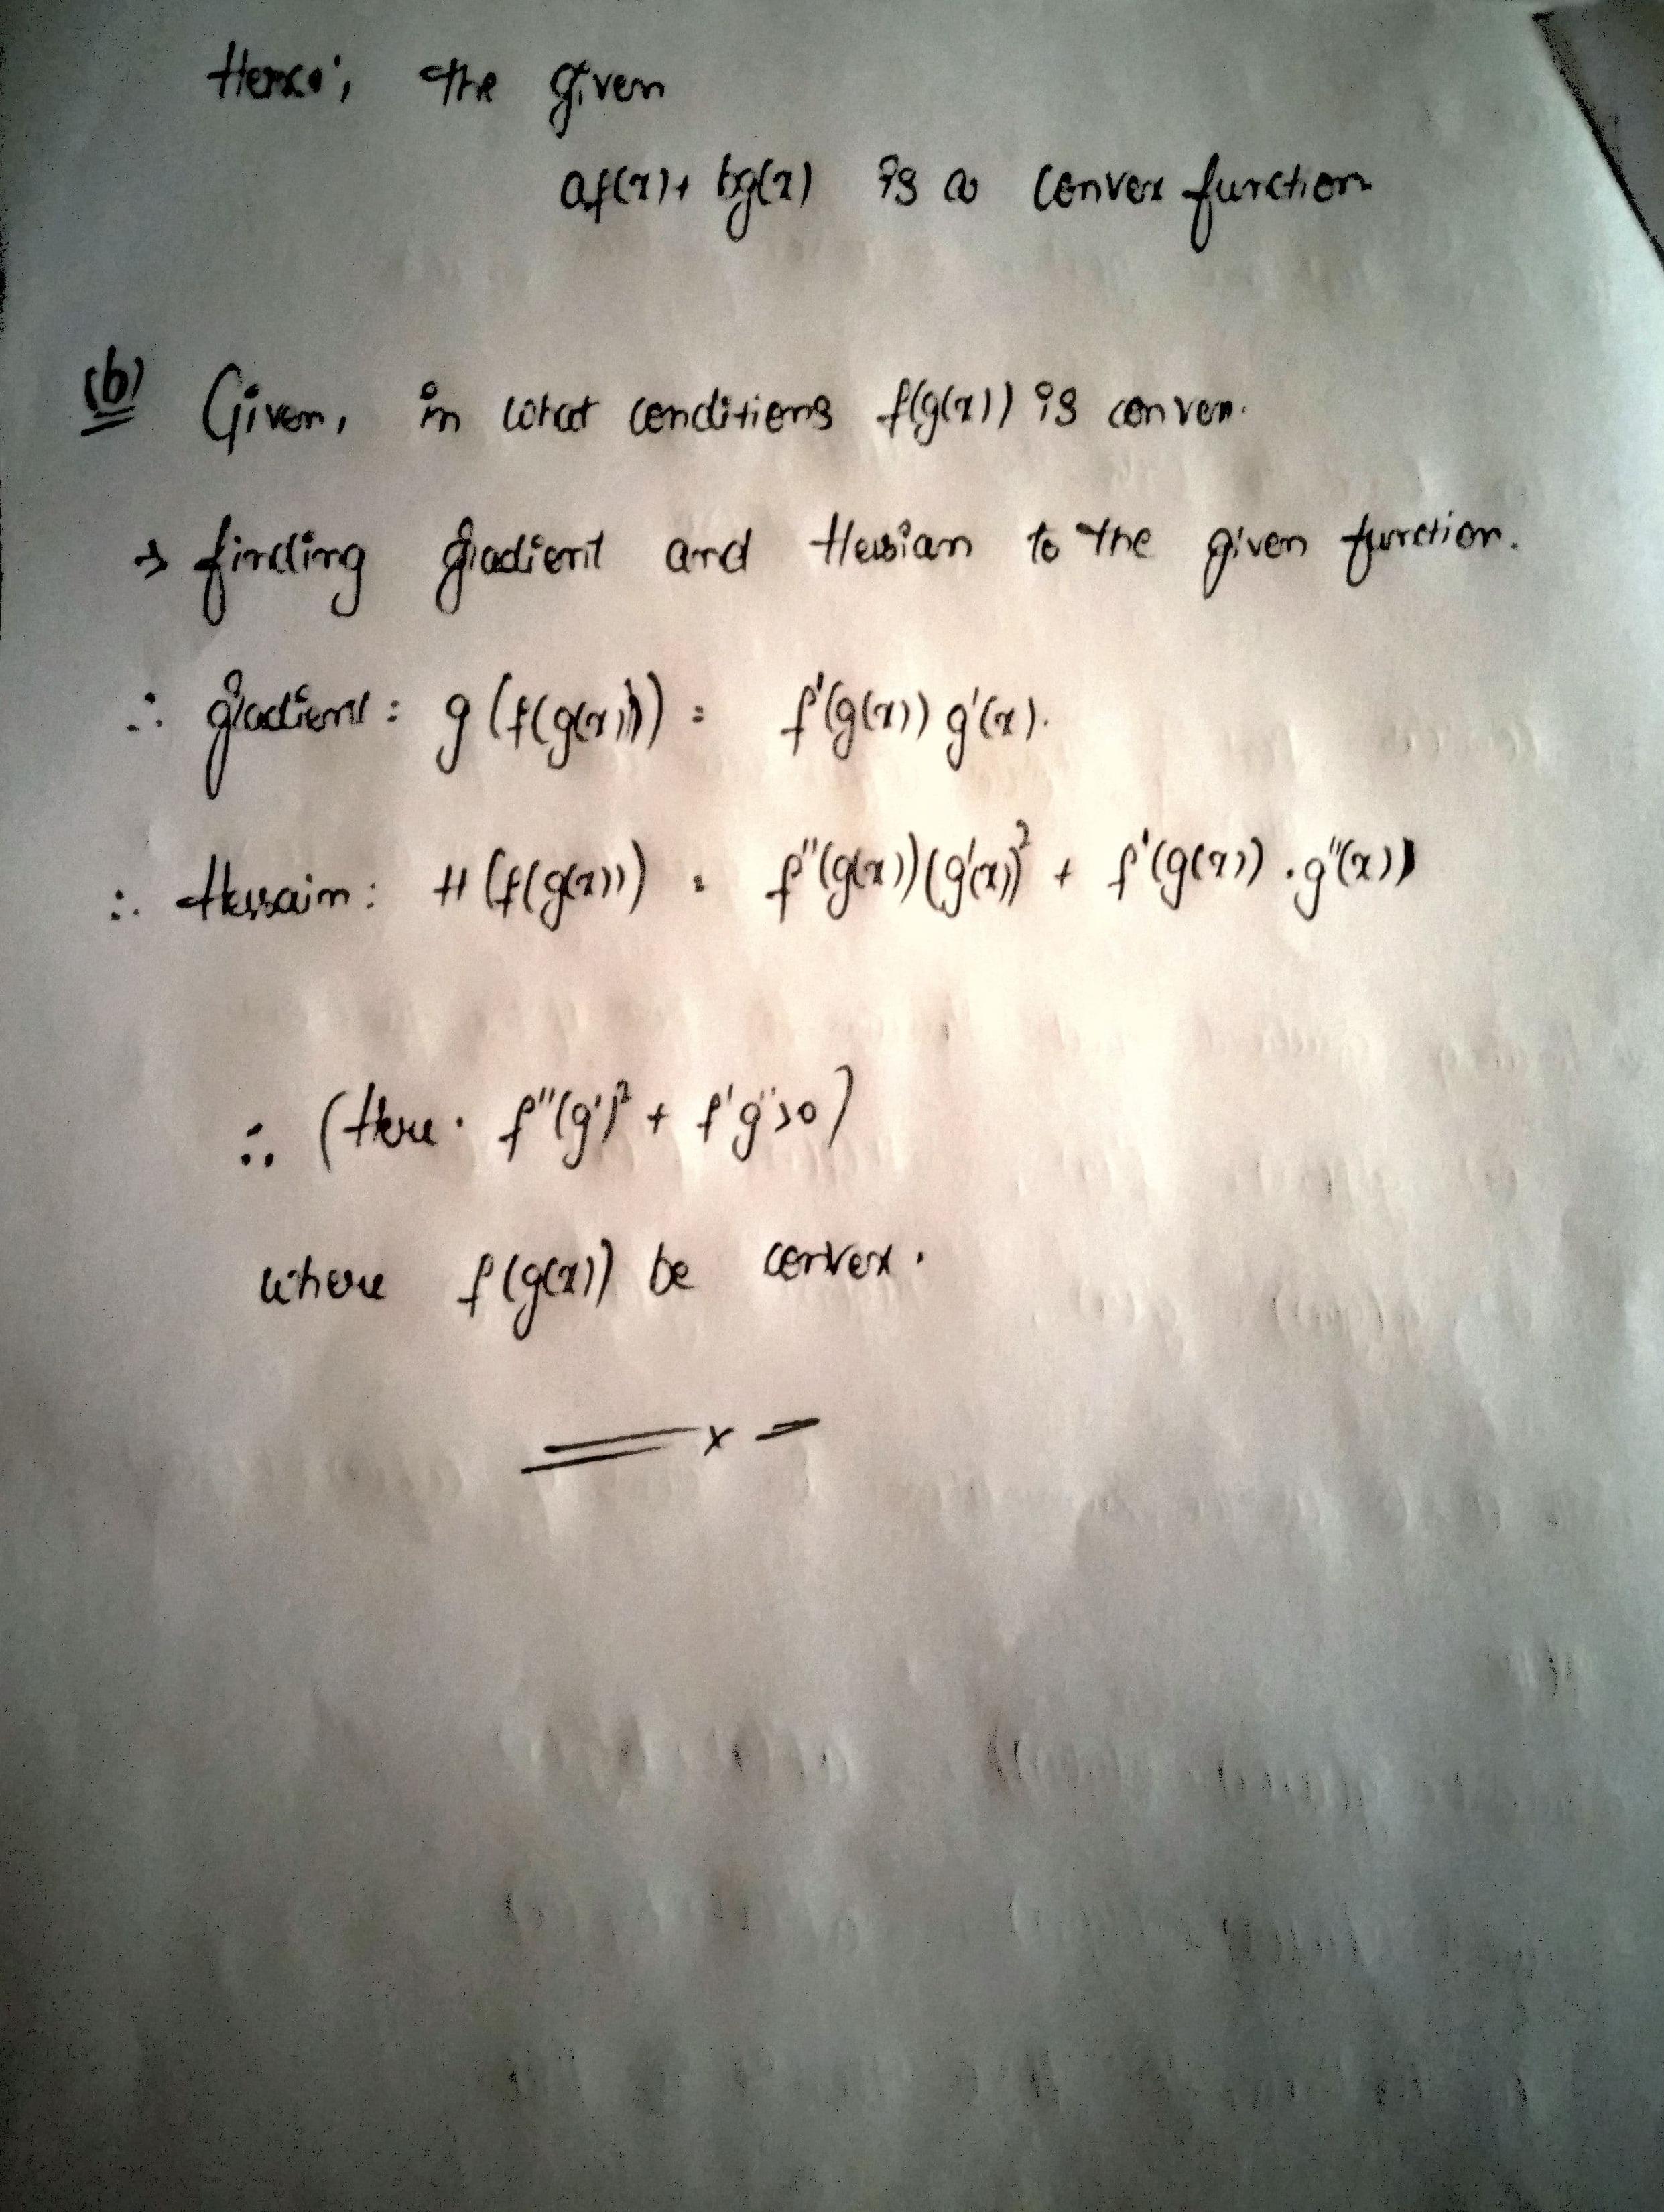 Hence, the given
af(x)+ bg(x) is a convex function
(b) Given, in what conditions f(g(x)) is convex.
→ finding gradient and Hessian to the given function.
∴ gradient: g(f(g(x))) = f'(g(x)) g'(x).
∴ Hessain: H(f(g(x))) = f''(g(x))(g'(x))² + f'(g(x)) . g''(x))
∴ (Here. f''(g')² + f'g''>0)
where f(g(x)) be convex.
x